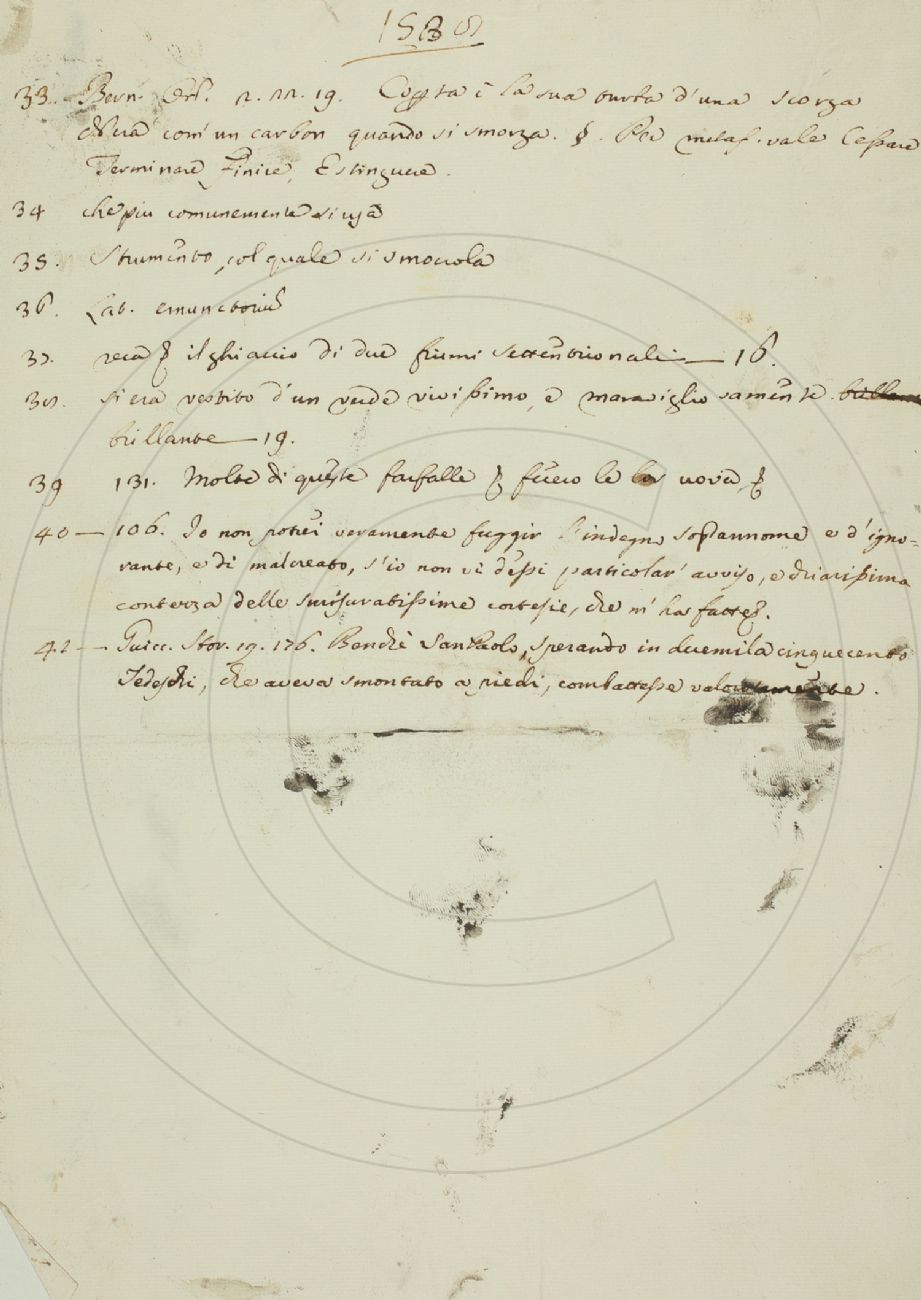 33. Bern. Orl. 2. 22. 19. Coperta è la sua tutta d'una scorza
che va com' un carbon quando si smorza. §. Per metaf. vale Cessare
Terminare Finire, Estinguere.
34 che piu comunemente si usa
35. Strumento, col quale si smoccola
36. Lat. emunctoriũ
37. reca il ghiaccio di due fiumi settentrionali — 16.
38. si era vestito d'un verde vivissimo, e maravigliosamente brillante
brillante — 19.
39 131. Molte di queste farfalle fecero le lor uova
40 — 106. Io non potrei veramente fuggir l'indegno soprannome e d'igno-
rante, e di malcreato, s'io non vi dessi particolar' avviso, e chiarissima
contezza delle smisuratissime cortesie, che m' ha fatte.
42 — Guicc. Stor. 19. 176. Benchè San Paolo, sperando in duemila cinquecento
Tedeschi, che aveva smontato a piedi, combattesse valorosamente.